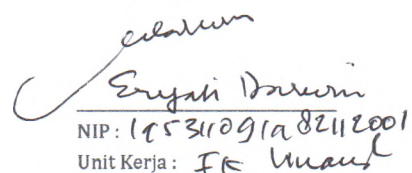 Eryati Darwin
NIP : 195311091982112001
Unit Kerja : FK Unand